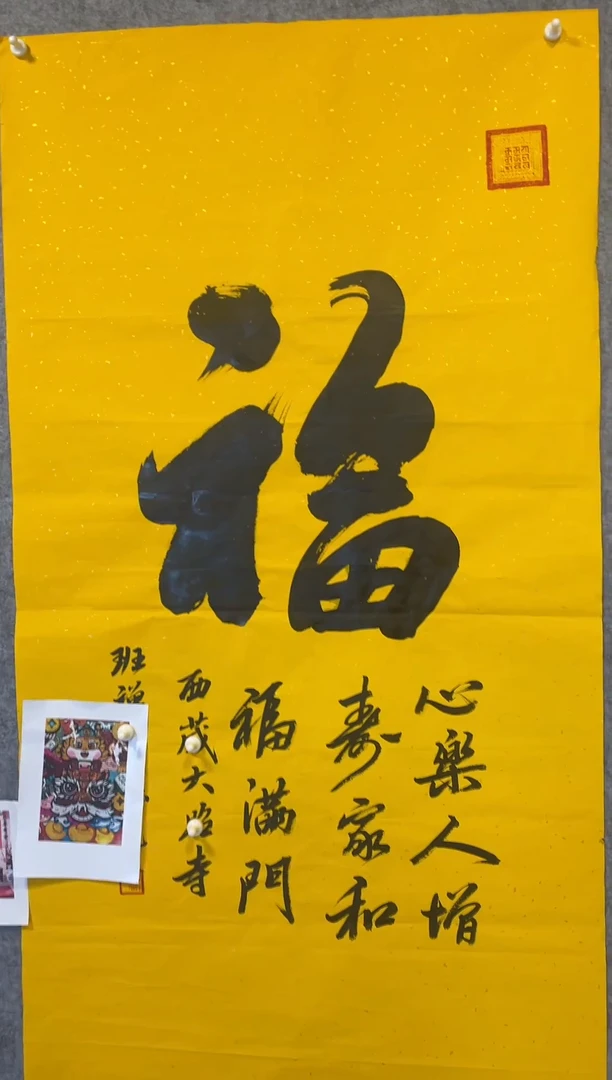 福
心樂人增
壽家和
福滿門
西茂大昭寺
班禅